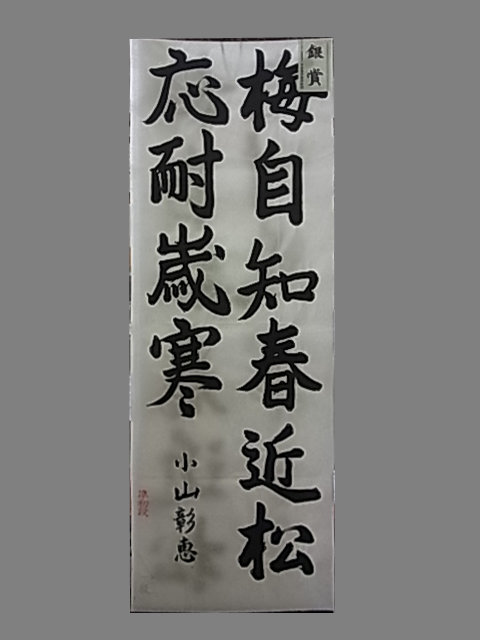 銀賞
梅自知春近松
応耐歳寒
小山彰恵
準初段